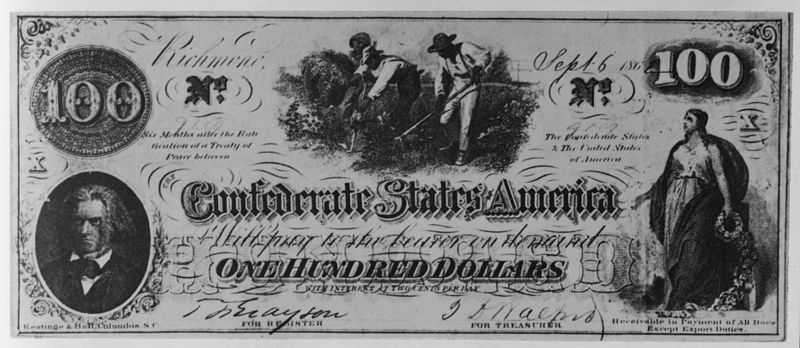 Richmond,
Sept. 6 186
100
100
No
No
Six Months after the Rati
fication of a Treaty of
Peace between
The Confederate States
& The United States
of America
X
X
THE
Confederate States of America
Will pay to the bearer on demand
HUNDRED
ONE HUNDRED DOLLARS
WITH INTEREST AT TWO CENTS PER DAY
FOR REGISTER
FOR TREASURER
Keatinge & Ball, Columbia S.C.
Receivable in Payment of All Dues
Except Export Duties.